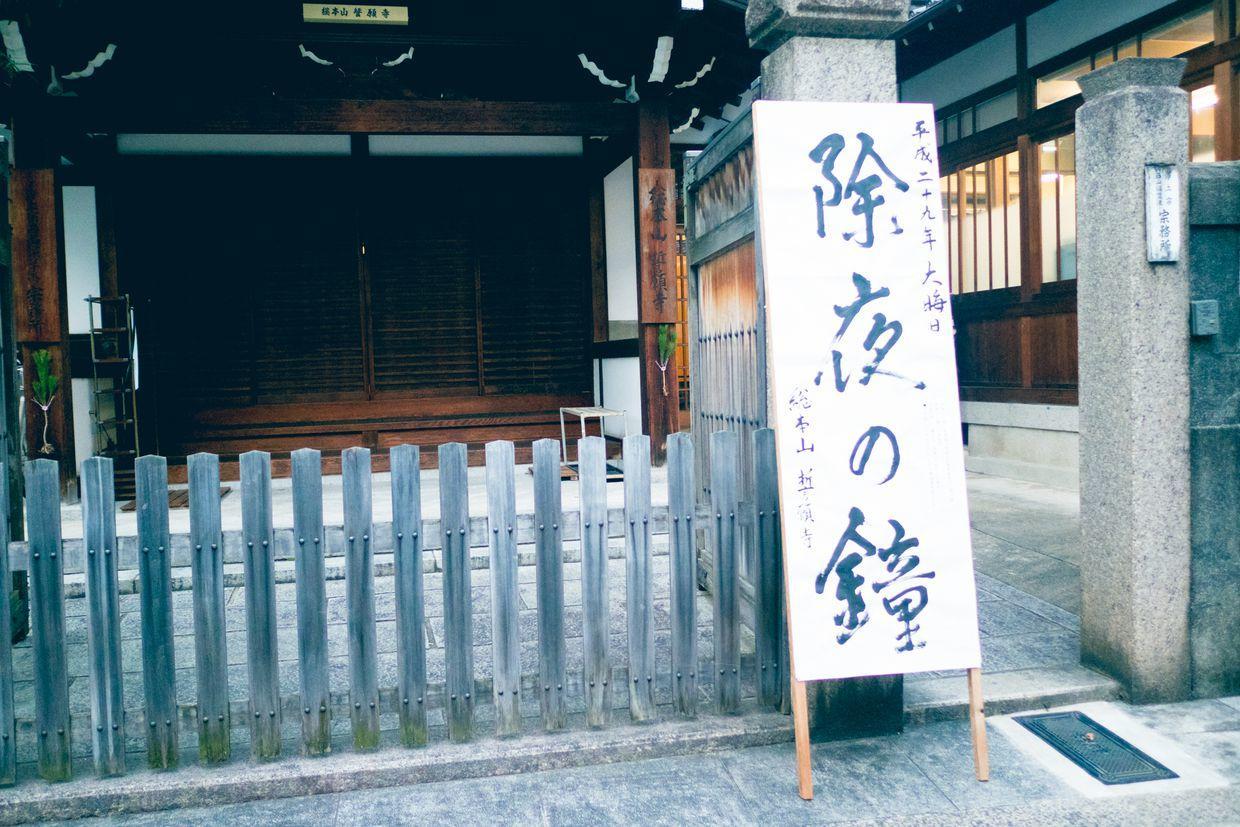 総本山 誓願寺
総本山 誓願寺
平成二十九年 大晦日
除夜の鐘
総本山 誓願寺
宗務所